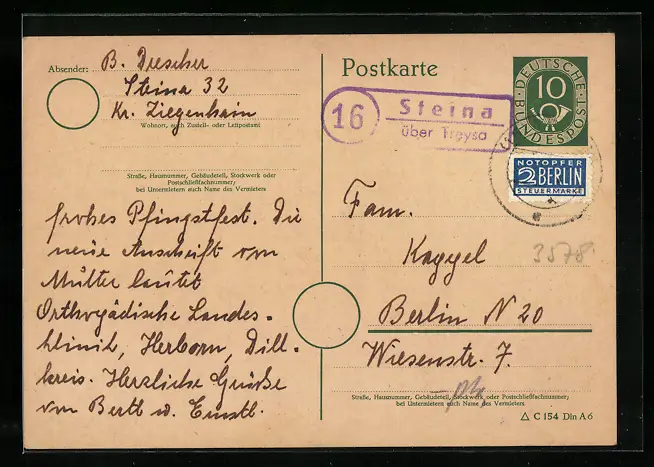 Absender: B. Drescher
Steina 32
Kr. Ziegenhain
Wohnort, auch Zustell- oder Leitpostamt
Straße, Hausnummer, Gebäudeteil, Stockwerk oder
Postschließfachnummer;
bei Untermietern auch Name des Vermieters
frohes Pfingstfest. Die
neue Anschrift von
Mutter lautet
Orthopädische Landes-
klinik, Herborn, Dill-
kreis. Herzliche Grüße
von Berth u. Ernstl.
Postkarte
16
Steina
über Treysa
DEUTSCHE
BUNDESPOST
10
NOTOPFER
2 BERLIN
STEUERMARKE
Fam.
Kappel
3578
Berlin N 20
Wiesenstr. 7.
Straße, Hausnummer, Gebäudeteil, Stockwerk oder Postschließfachnummer;
bei Untermietern auch Name des Vermieters
C 154 Din A 6